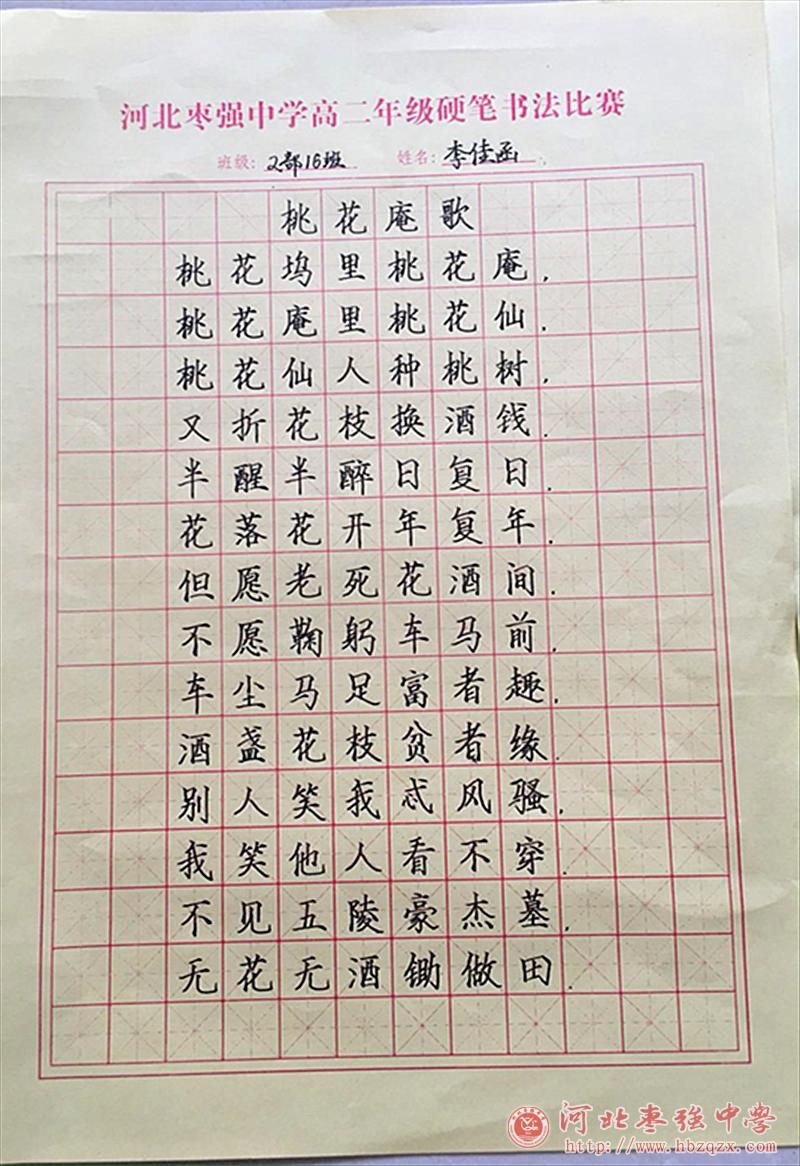 河北枣强中学高二年级硬笔书法比赛
班级：2部16班 姓名：李佳函
桃花庵歌
桃花坞里桃花庵，
桃花庵里桃花仙．
桃花仙人种桃树，
又折花枝换酒钱．
半醒半醉日复日，
花落花开年复年．
但愿老死花酒间．
不愿鞠躬车马前，
车尘马足富者趣，
酒盏花枝贫者缘．
别人笑我忒风骚，
我笑他人看不穿．
不见五陵豪杰墓，
无花无酒锄做田．
河北枣强中学
http://www.hbzqzx.com